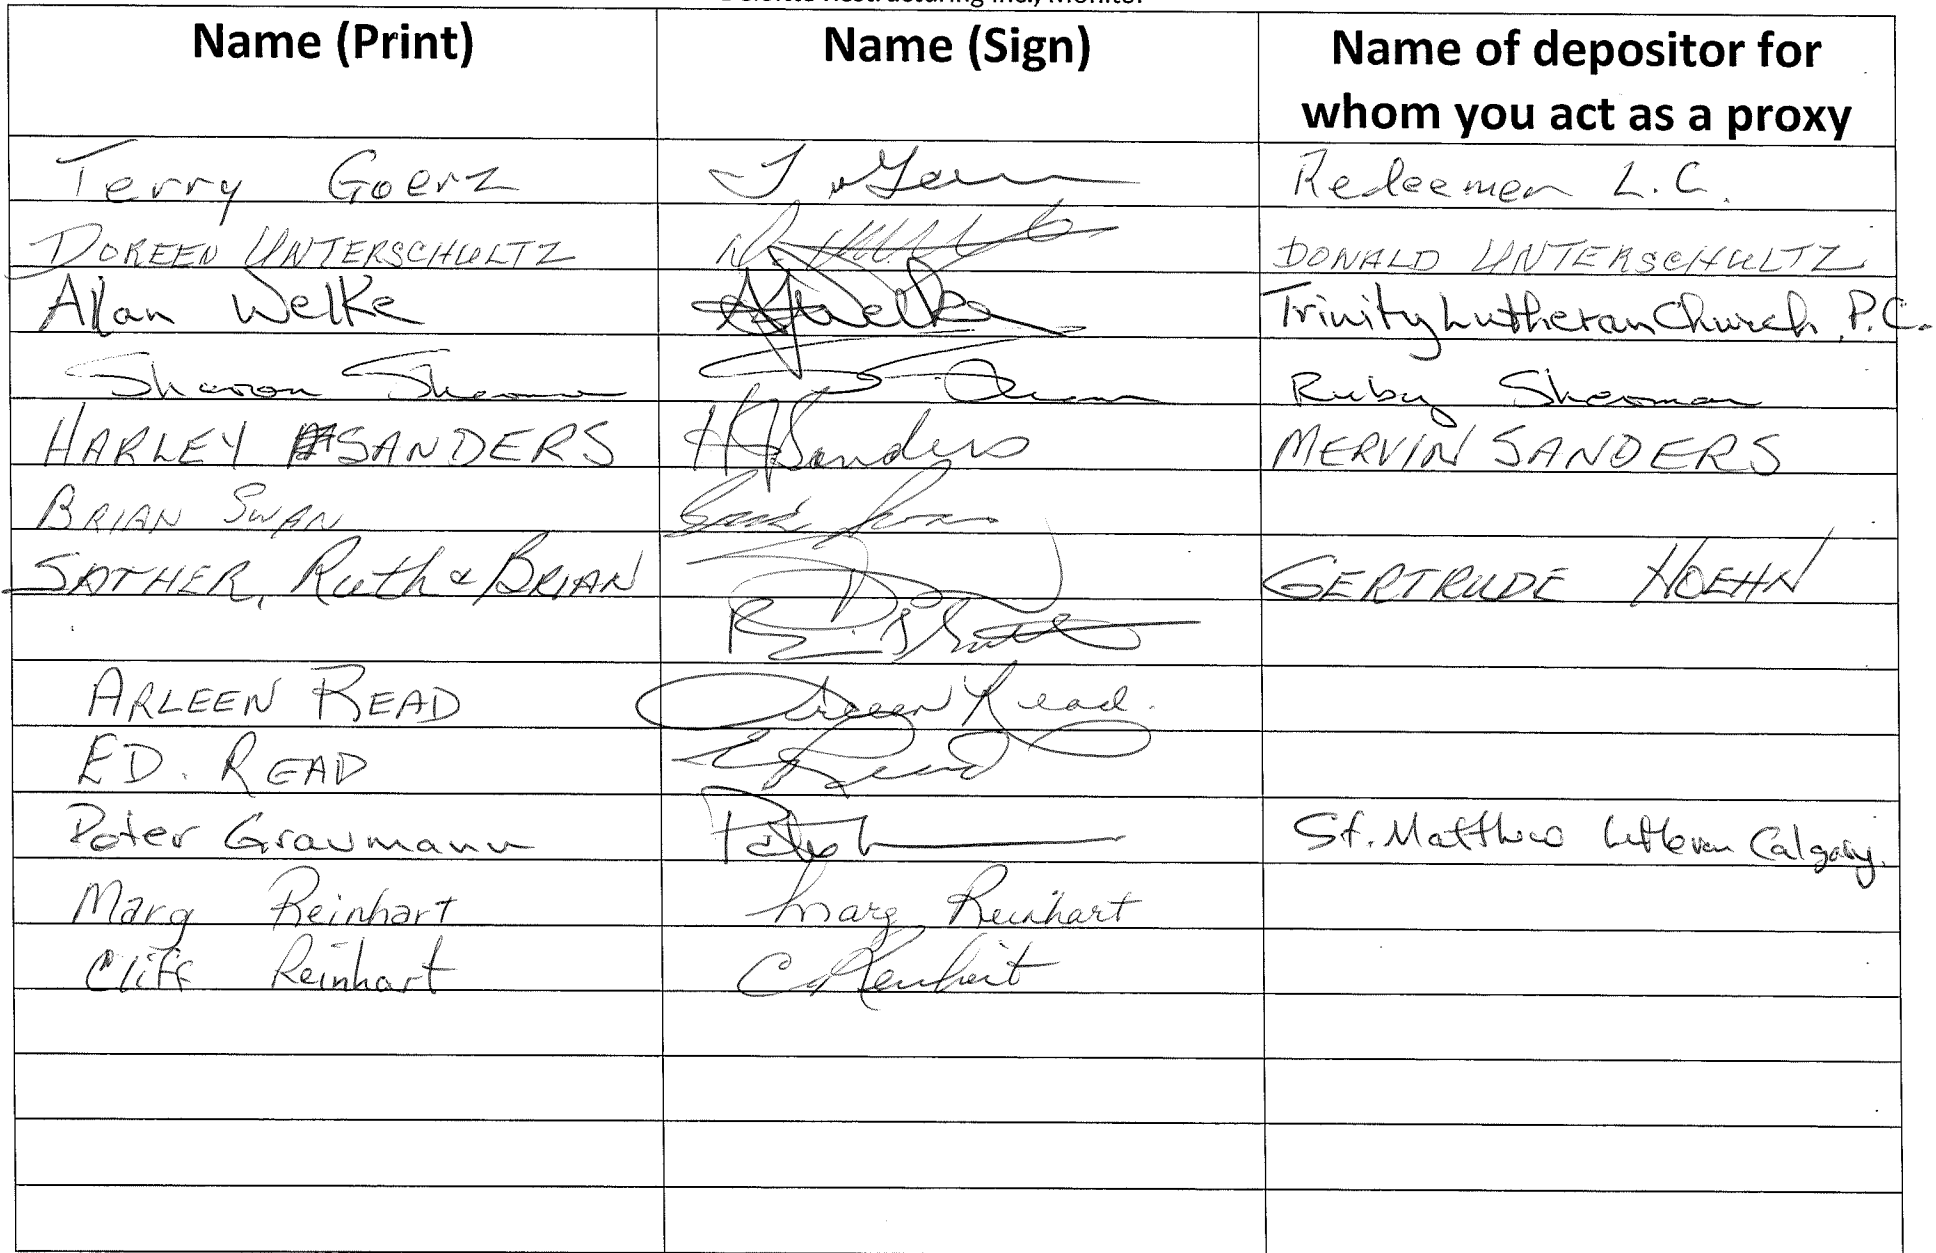 Deloitte Restructuring Inc., Monitor
Name (Print) Name (Sign) Name of depositor for
whom you act as a proxy
Terry Goerz Redeemer L.C.
DOREEN UNTERSCHULTZ DONALD UNTERSCHULTZ
Allan Welke AJWelke Trinity Lutheran Church, P.C.
Sharon Sherman Ruby Sherman
HARLEY SANDERS H Sanders MERVIN SANDERS
BRIAN SWAN Brian Swan
SATHER, Ruth & BRIAN GERTRUDE HOEHN
ARLEEN READ Arleen Read.
ED. READ E Read
Peter Graumann St. Matthew Lutheran Calgary.
Marg Reinhart Marg Reinhart
Cliff Reinhart C Reinhart